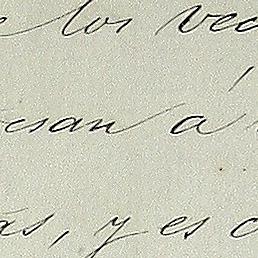 los vec
esan á
as, y es